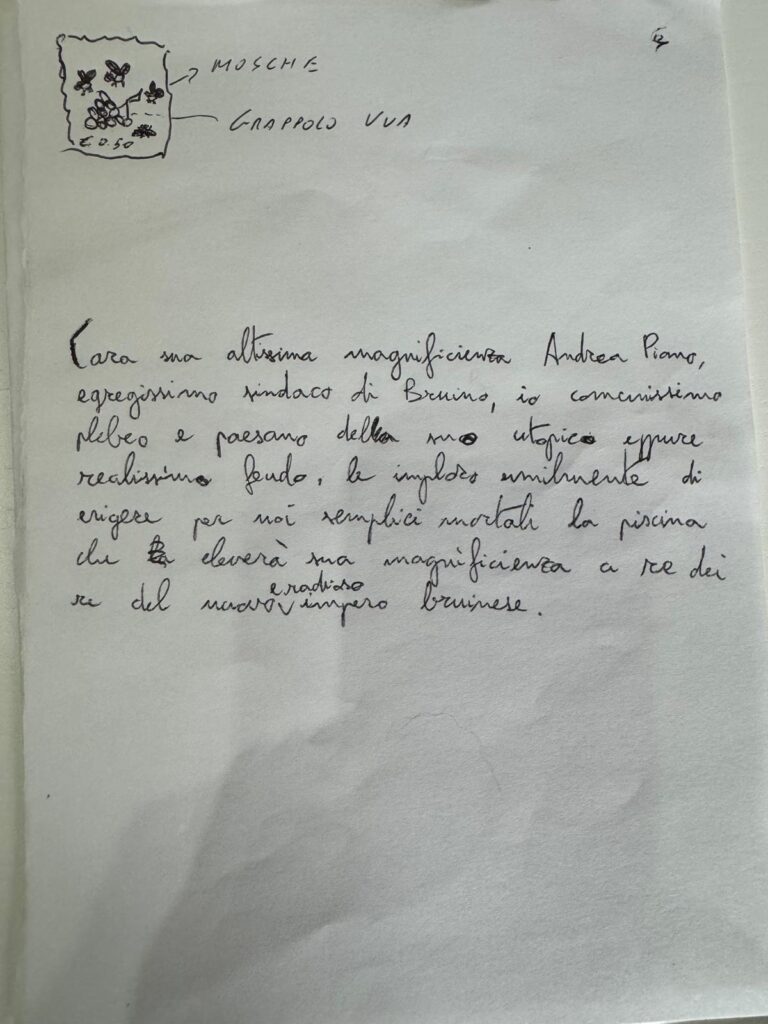 MOSCHE
GRAPPOLO UVA
€ 0.50
Cara sua altissima magnificienza Andrea Piano,
egregissimo sindaco di Bruino, io comunissimo
plebeo e paesano della suo utopico eppure
realissimo feudo, le imploro umilmente di
erigere per noi semplici mortali la piscina
che eleverà sua magnificienza a re dei
re del nuovo e radioso impero bruinese.